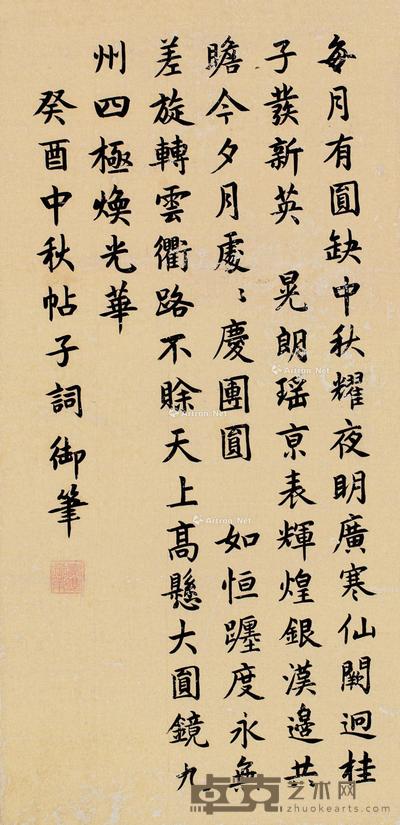 每月有圓缺中秋耀夜明廣寒仙闕迥桂
子發新英 晃朗瑤京表輝煌銀漢邊共
瞻今夕月處〻慶團圓 如恒躔度永無
差旋轉雲衢路不賒天上高懸大圓鏡九
州四極煥光華
癸酉中秋帖子詞 御筆
Artron.Net
Artron.Net
Artron.Net
Artron.Net
卓克艺术网
zhuokearts.com